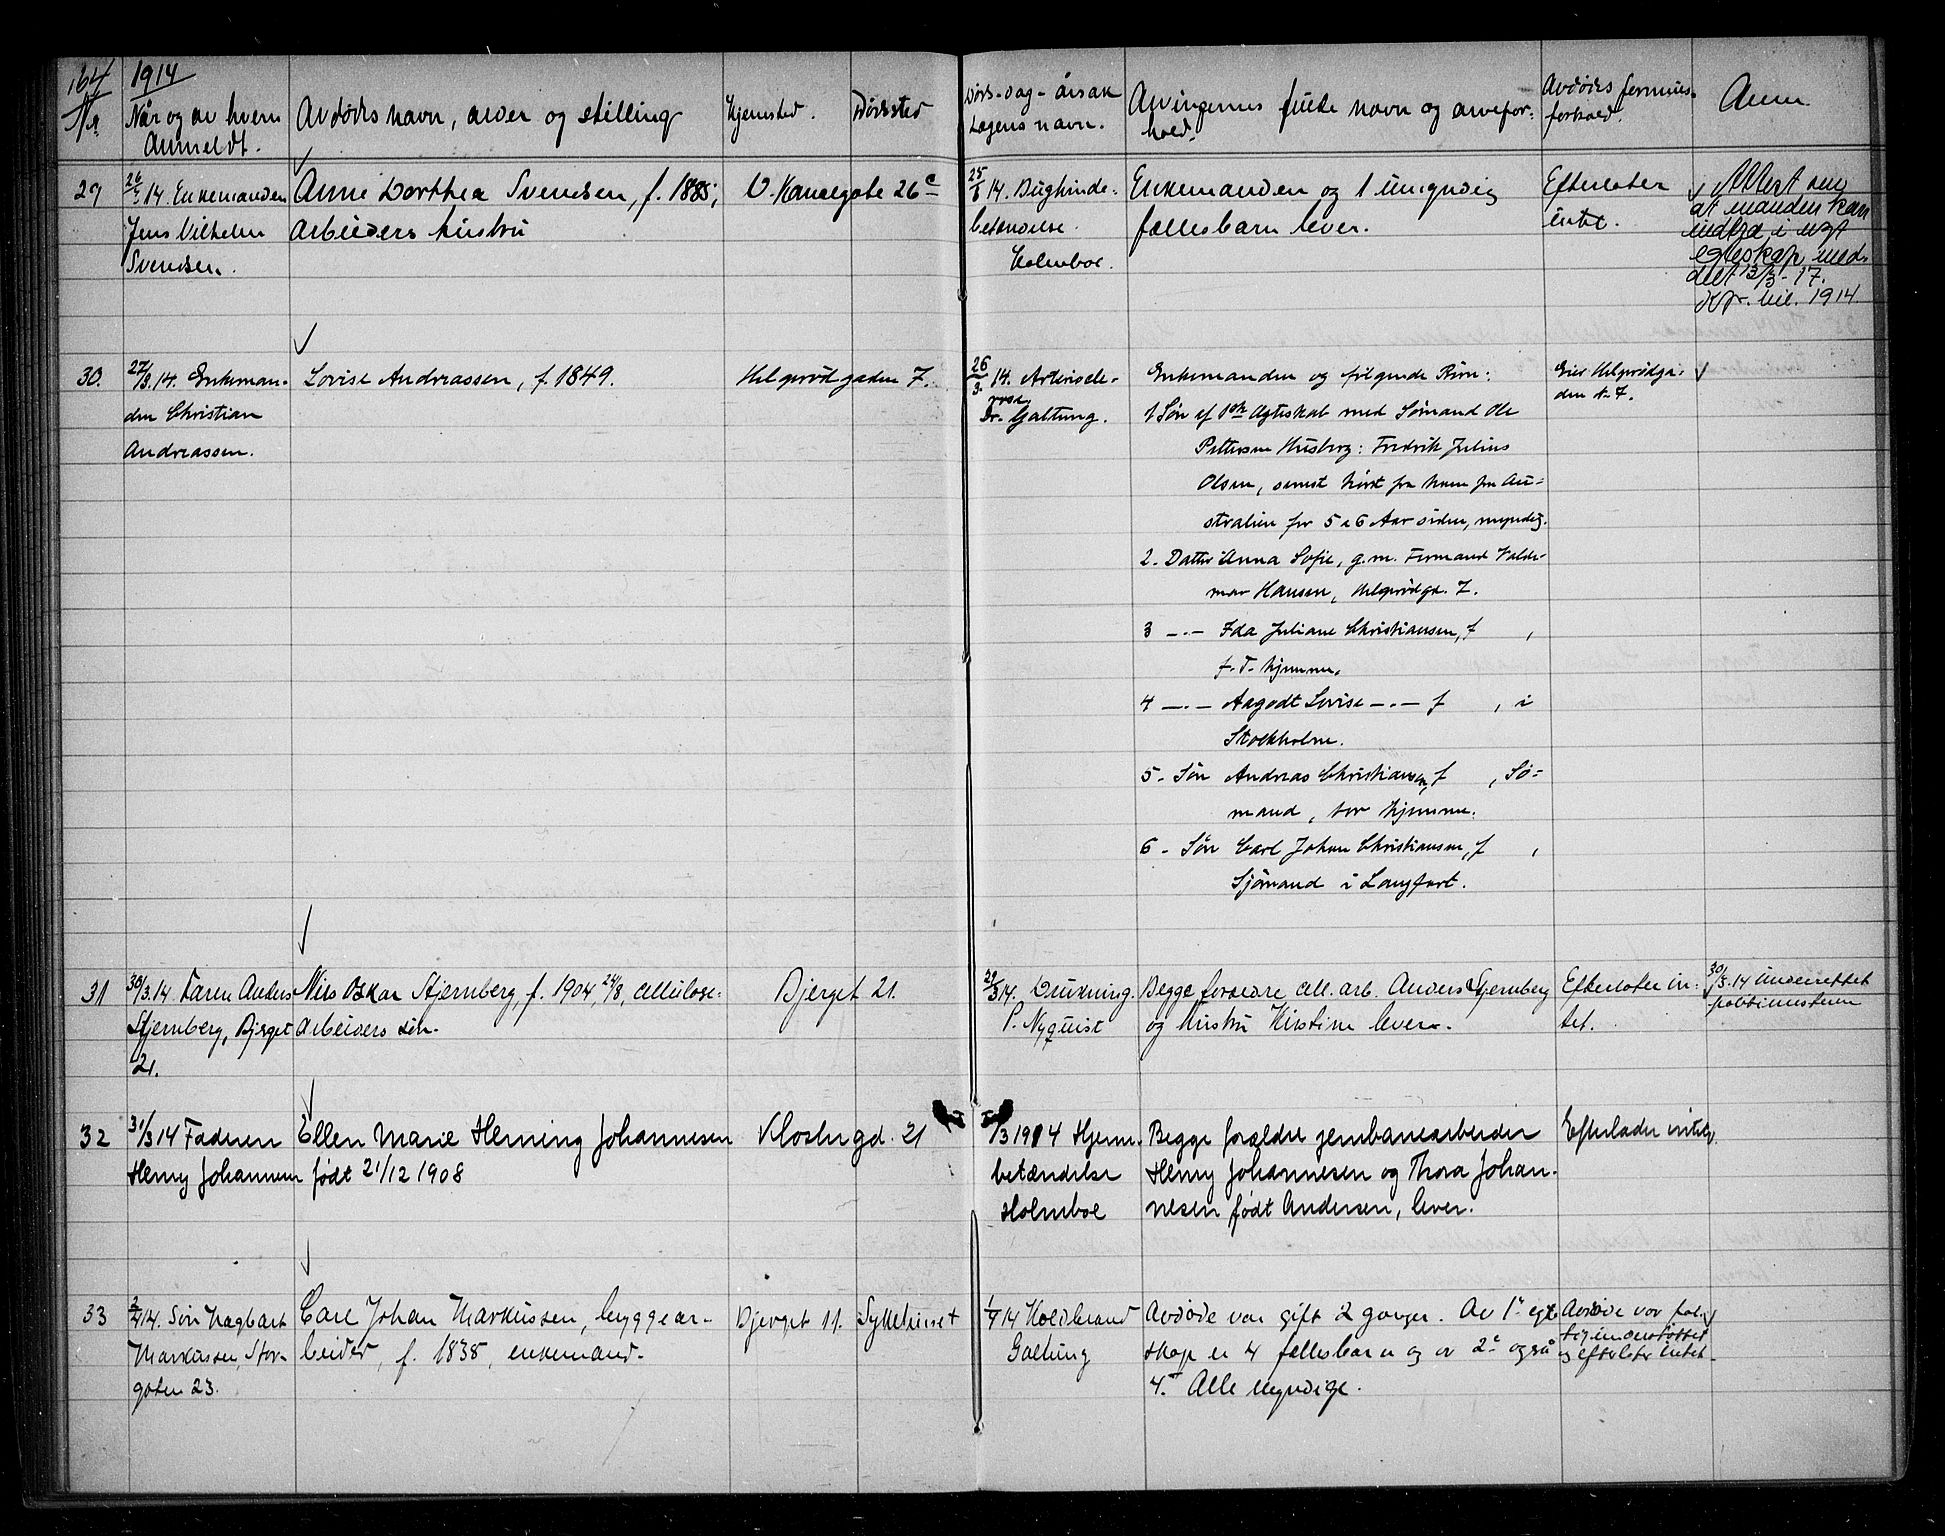 164
1914
Nr.
Når og av hvem
Anmeldt.
Avdødes navn, alder og stilling
Hjemsted.
Dødssted
Døds-dag- årsak
Lægens navn.
Arvingernes fulde navn og arvefor-
hold.
Avdødes formues-
forhold.
Anm
29
26/3 14. Enkemanden
Jens Vilhelm
Svendsen.
Anne Dorthea Svendsen, f. 1885;
Arbeiders hustru
V. Kanalgate 26c
25/3 14. Bughinde-
betændelse.
Holmboe.
Enkemanden og 1 umyndig
fællesbarn lever.
Efterlater
intet.
Attest om
at manden kan
indtræ i nyt
egteskap, med-
delt 13/3-17.
Kfr. bil. 1914
30.
27/3. 14. Enkeman-
den Christian
Andreassen.
Lovise Andreassen, f. 1849.
Helgerødgaden 7.
26/3 14. Arterioscle-
rose
Dr. Galtung.
Enkemanden og følgende Børn:
1 Søn af 1ste Ægteskab med Sømand Ole
Pettersen Husberg: Fredrik Julius
Olsen, senest hørt fra ham fra Au-
stralien for 5 a 6 Aar siden, myndig.
2. Datter Anna Sofie, g.m. Formand Valde-
mar Hansen, Helgerødgd. 7.
3 —.— Ida Juliane Christiansen, f ,
f. T. hjemme.
4 —.— Aagodt Lovise —.— f , i
Stockholm.
5 - Søn Andreas Christiansen, f , Sø-
mand, bor hjemme.
6 - Søn Carl Johan Christiansen, f ,
Sjømand i Langfart.
Eier Helgerødga-
den nr. 7.
31
30/3. 14 Faren Anders
Stjernberg, Bjerget
21.
Nils Oskar Stjernberg, f. 1904 24/8, cellulose-
arbeiders søn.
Bjerget 21.
29/3 14. Drukning.
P. Nyquist
Begge forældre cell. arb. Anders Stjernberg
og hustru Kirstine lever.
Efterlater in-
tet.
30/3. 14 Underrettet
politimesteren
32
31/3 14 Faderen
Henry Johannesen
Ellen Marie Henning Johannesen
født 21/12 1908
Klostergd. 21
/3 1914 Hjerne-
betændelse
Holmboe
Begge forældre jernbanearbeider
Henry Johannesen og Thora Johan-
nesen født Andersen, lever.
Efterlader intet.
33
2/4 14. Søn Hagbart
Markussen, Stor-
gaten 23.
Carl Johan Markussen, byggear-
beider, f. 1838, enkemand.
Bjerget 11.
Sykehuset
1/4 14 Koldbrand
Galtung
Avdøde var gift 2 ganger. Av 1ste egte-
skap er 4 fællesbarn og av 2det også
4. Alle myndige.
Avdøde var fat-
tigunderstøttet
og efterlater intet.